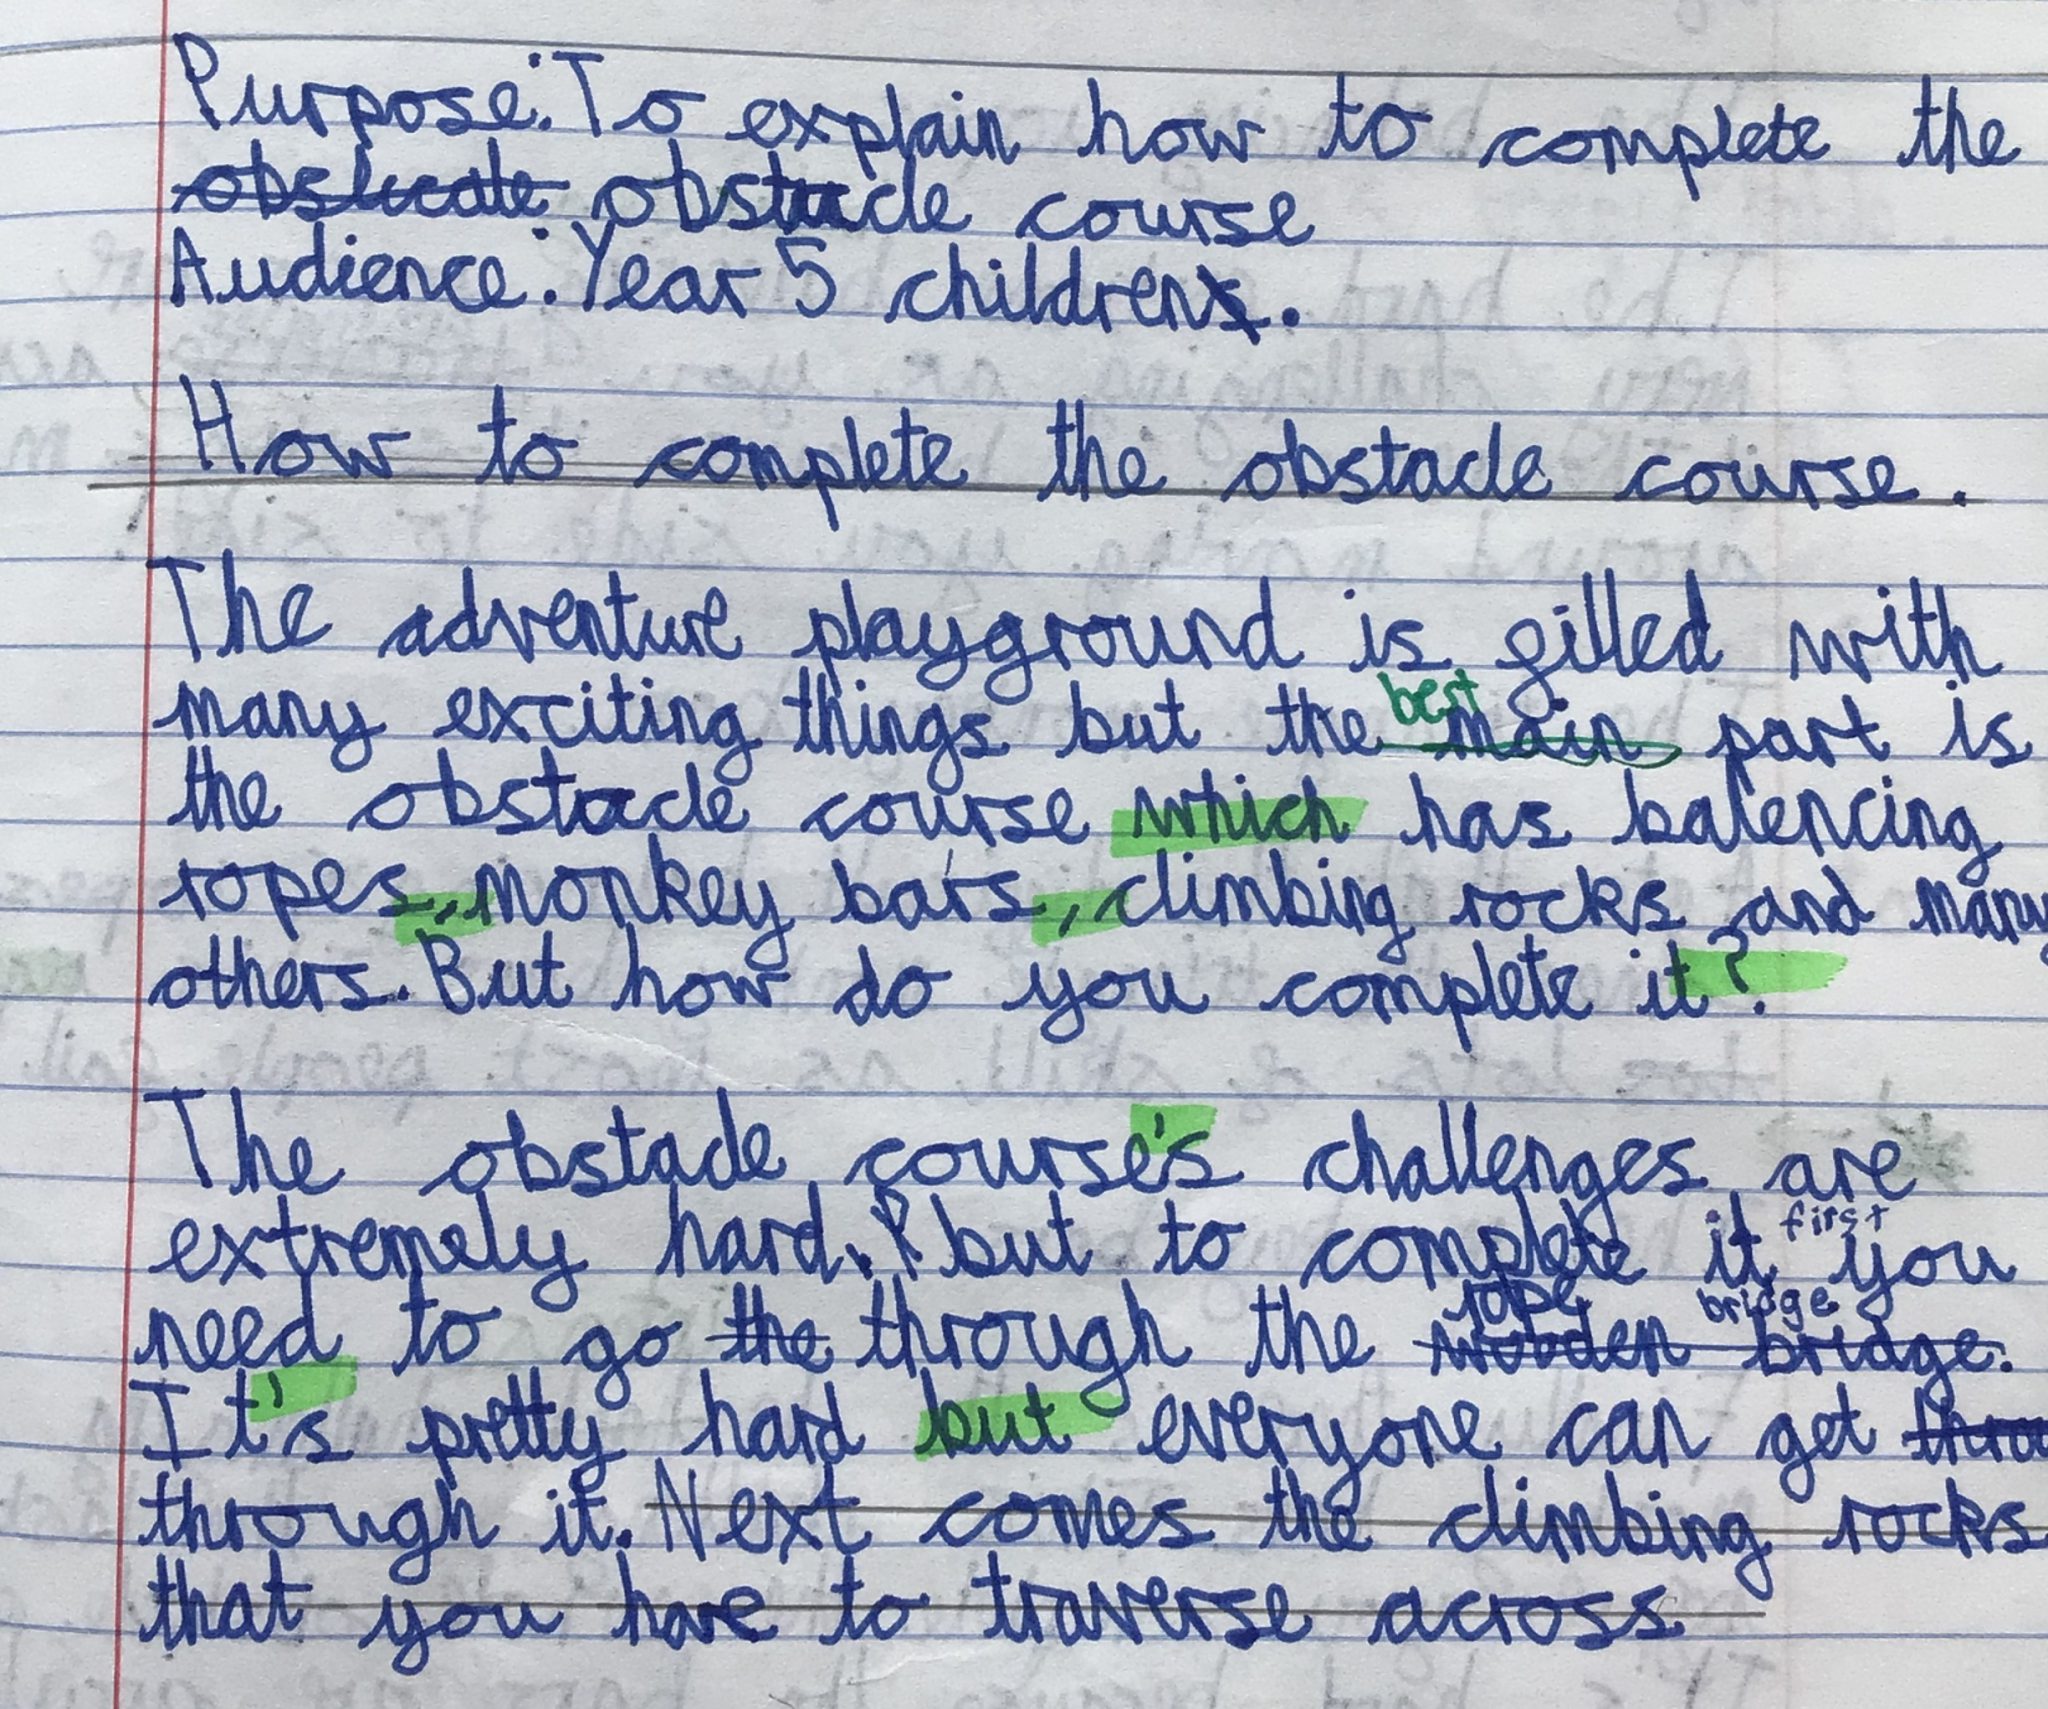 Purpose: To explain how to complete the
obslucate obstacle course
Audience: Year 5 childrens.
How to complete the obstacle course.
The adventure playground is filled with
best
many exciting things but the main part is
the obstacle course which has balencing
ropes, monkey bars, climbing rocks and many
others. But how do you complete it?
The obstacle course's challenges are
extremely hard, but to complete it first you
rope bridge
need to go the through the wooden bridge.
It's pretty hard but everyone can get throu
through it. Next comes the climbing rocks
that you have to traverse across